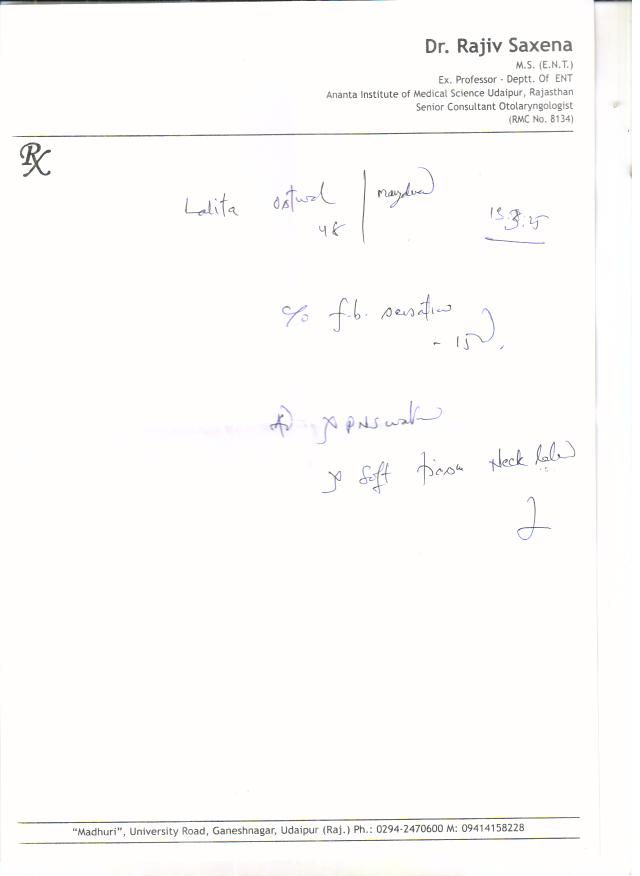 Dr. Rajiv Saxena
M.S. (E.N.T.)
Ex. Professor - Deptt. Of ENT
Ananta Institute of Medical Science Udaipur, Rajasthan
Senior Consultant Otolaryngologist
(RMC No. 8134)
Rx
Lalita
48
c/o f.b. sensation
- 15
PNS
Soft Neck
"Madhuri", University Road, Ganeshnagar, Udaipur (Raj.) Ph.: 0294-2470600 M: 09414158228